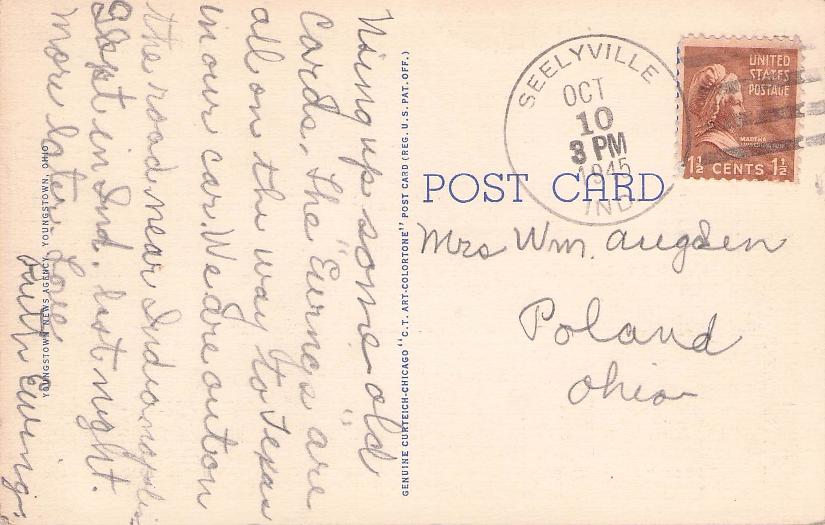 Using up some old
Cards. The "Ewings" are
all on the way to Texas
in our car. We are out on
the road near Indianapolis.
Slept in Ind. last night.
More later. Love
Ruth Ewing.
YOUNGSTOWN NEWS AGENCY, YOUNGSTOWN, OHIO
GENUINE CURTEICH-CHICAGO "C.T. ART-COLORTONE" POST CARD (REG. U.S. PAT. OFF.)
SEELYVILLE
OCT
10
3 PM
1945
IND
UNITED
STATES
POSTAGE
MARTHA
WASHINGTON
1½ CENTS 1½
POST CARD
Mrs Wm. Augden
Poland
Ohio